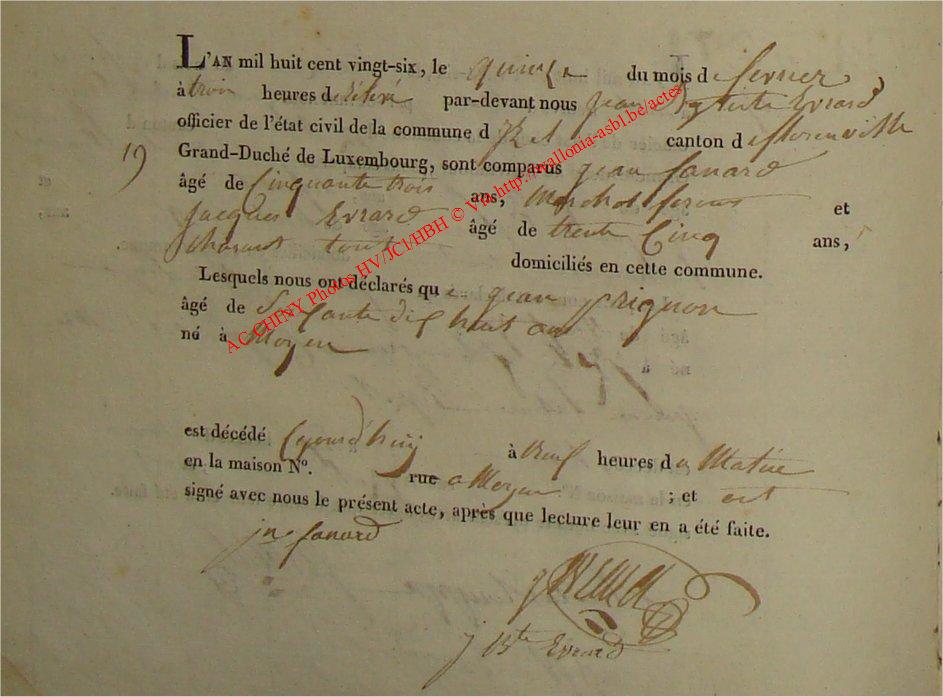 L'AN mil huit cent vingt-six, le quinze du mois de fevrier
à trois heures de relevé par-devant nous jean Bptiste Evrard
officier de l'état civil de la commune d canton de florenville
19 Grand-Duché de Luxembourg, sont comparus jean fanard
âgé de Cinquante trois ans, Marchot ferant et
Jacques Evrard âgé de trente Cinq ans,
tout domiciliés en cette commune.
Lesquels nous ont déclarés que jean Grignon
âgé de Soisante dix huit ans
né à Moyen
est décédé à neuf heures du Matin
en la maison N°. rue a Moyen ; et ont
signé avec nous le présent acte, après que lecture leur en a été faite.
jn fanard
j Bte Evrard
AC CHINY Photos HV/JCI/HBH © VW http://wallonia-asbl.be/actes/